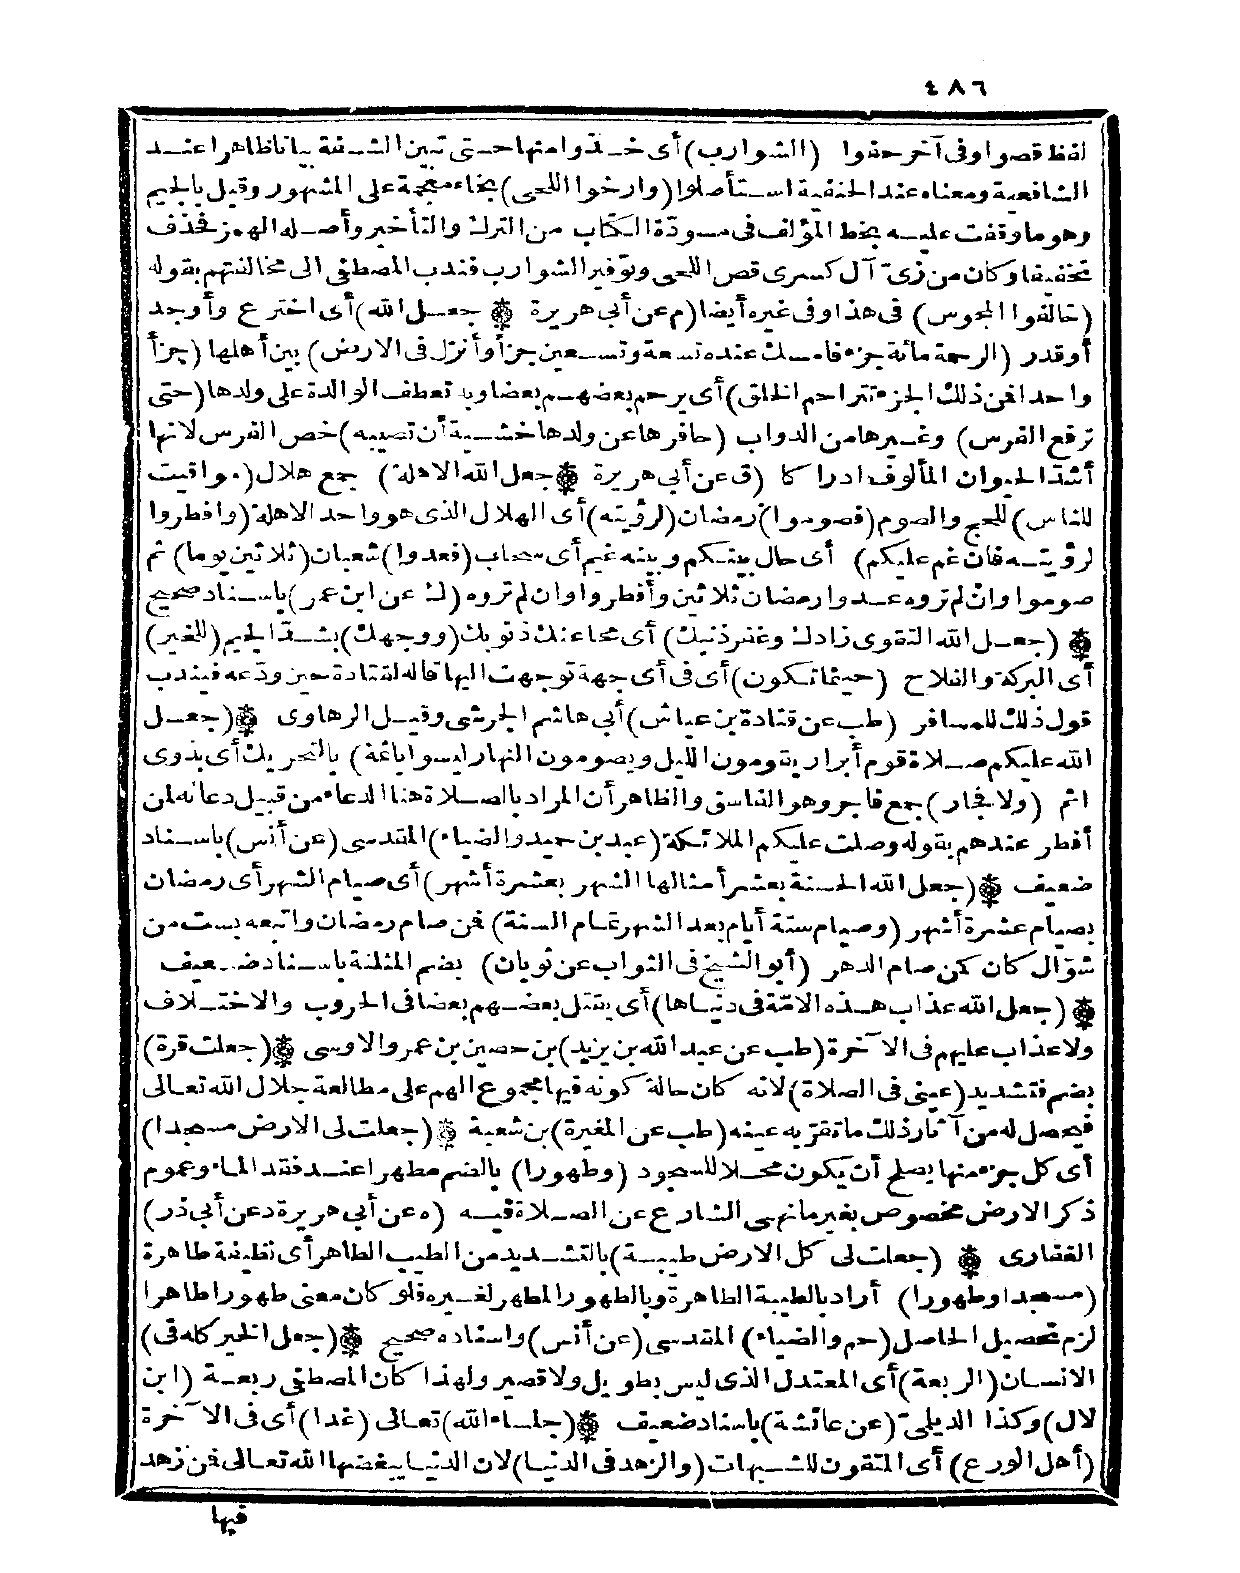 ٤٨٦
لفظ قصوا وفى آخر حفوا (الشوارب) أى خذوا منها حتى تبين الشفة بيانا ظاهرا عند
الشافعية ومعناه عند الحنفية استأصلوا (وارخوا اللحى) بخاء معجمة على المشهور وقيل بالجيم
وهو ما وقفت عليه بخط المؤلف فى مسودة الكتاب من الترك والتأخير وأصله الهمز فحذف
تخفيفا وكان من زىّ آل كسرى قص اللحى وتوفير الشوارب فندب المصطفى الى مخالفتهم بقوله
(خالفوا المجوس) فى هذا وفى غيره أيضا (م عن أبى هريرة ۞ جعل الله) أى اخترع وأوجد
أو قدر (الرحمة مائة جزء فامسك عنده تسعة وتسعين جزأ وأنزل فى الارض) بين أهلها (جزأ
واحدا فمن ذلك الجزء تتراحم الخلق) أى يرحم بعضهم بعضا وبه تعطف الوالدة على ولدها (حتى
ترفع الفرس) وغيرها من الدواب (حافرها عن ولدها خشية أن تصيبه) خص الفرس لانها
أشدّ الحيوان المألوف ادراكا (ق عن أبى هريرة ۞ جعل الله الاهلة) جمع هلال (مواقيت
للناس) للحج والصوم (فصوموا) رمضان (لرؤيته) أى الهلال الذى هو واحد الاهلة (وافطروا
لرؤيته فان غم عليكم) أى حال بينكم وبينه غيم أى سحاب (فعدوا) شعبان (ثلاثين يوما) ثم
صوموا وان لم تروه عدوا رمضان ثلاثين وأفطروا وان لم تروه (ك عن ابن عمر) باسناد صحيح
۞ (جعل الله التقوى زادك وغفر ذنبك) أى محا عنك ذنوبك (ووجهك) بشدّ الجيم (للخير)
أى البركة والفلاح (حيثما تكون) أى فى أى جهة توجهت اليها قاله لقتادة حين ودّعه فيندب
قول ذلك للمسافر (طب عن قتادة بن عياش) أبى هاشم الجرشى وقيل الرهاوى ۞ (جعل
الله عليكم صلاة قوم أبرار يقومون الليل ويصومون النهار ليسوا باثمة) بالتحريك أى بذوى
اثم (ولا فجار) جمع فاجر وهو الفاسق والظاهر أن المراد بالصلاة هنا الدعاء من قبيل دعائه لمن
أفطر عندهم بقوله وصلت عليكم الملائكة (عبد بن حميد والضياء) المقدسى (عن أنس) باسناد
ضعيف ۞ (جعل الله الحسنة بعشر أمثالها الشهر بعشرة أشهر) أى صيام الشهر أى رمضان
بصيام عشرة أشهر (وصيام ستة أيام بعد الشهر تمام السنة) فمن صام رمضان واتبعه بست من
شوّال كان كمن صام الدهر (أبو الشيخ فى الثواب عن ثوبان) بضم المثلثة باسناد ضعيف
۞ (جعل الله عذاب هذه الامّة فى دنياها) أى يقتل بعضهم بعضا فى الحروب والاختلاف
ولا عذاب عليهم فى الآخرة (طب عن عبد الله بن يزيد) بن حصين بن عمرو الاوسى ۞ (جعلت قرة)
بضم فتشديد (عينى فى الصلاة) لانه كان حالة كونه فيها مجموع الهم على مطالعة جلال الله تعالى
فيحصل له من آثار ذلك ما تقرّ به عينه (طب عن المغيرة) بن شعبة ۞ (جعلت لى الارض مسجدا)
أى كل جزء منها يصلح أن يكون محلا للسجود (وطهورا) بالضم مطهرا عند فقد الماء وعموم
ذكر الارض مخصوص بغير ما نهى الشارع عن الصلاة فيه (ه عن أبى هريرة د عن أبى ذر)
الغفارى ۞ (جعلت لى كل الارض طيبة) بالتشديد من الطيب الطاهر أى نظيفة طاهرة
(مسجدا وطهورا) أراد بالطيبة الطاهرة وبالطهور المطهر لغيره فلو كان معنى طهورا طاهرا
لزم تحصيل الحاصل (حم والضياء) المقدسى (عن أنس) واسناده صحيح ۞ (جعل الخير كله فى)
الانسان (الربعة) أى المعتدل الذى ليس بطويل ولا قصير ولهذا كان المصطفى ربعة (ابن
لال) وكذا الديلمىّ (عن عائشة) باسناد ضعيف ۞ (جلساء الله) تعالى (غدا) أى فى الآخرة
(أهل الورع) أى المتقون للشبهات (والزهد فى الدنيا) لان الدنيا يبغضها الله تعالى فمن زهد
فيها